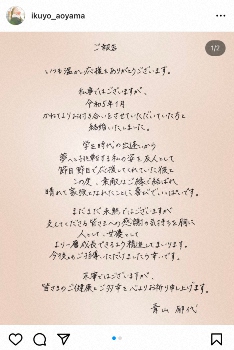 ikuyo_aoyama
1/2
ご報告
いつも温かい応援をありがとうございます。
私事ではございますが、
令和5年1月
かねてよりお付き合いをさせていただいていた方と
結婚いたしました。
学生時代の出逢いから
夢へと挑戦する私の姿を友人として
節目節目で応援してくれていた彼と
この度、素敵なご縁で結ばれ
晴れて家族となれたことに喜びでいっぱいです。
まだまだ未熟ではございますが
支えてくださる皆さまへの感謝の気持ちを胸に
人として、女優として
より一層成長できるよう精進してまいります。
今後もご指導いただけましたら幸いです。
末筆ではございますが、
皆さまのご健康とご多幸を心よりお祈り申し上げます。
青山 郁代